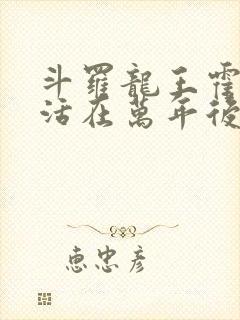 斗羅龍王霍
活在萬年後
恵忠彦